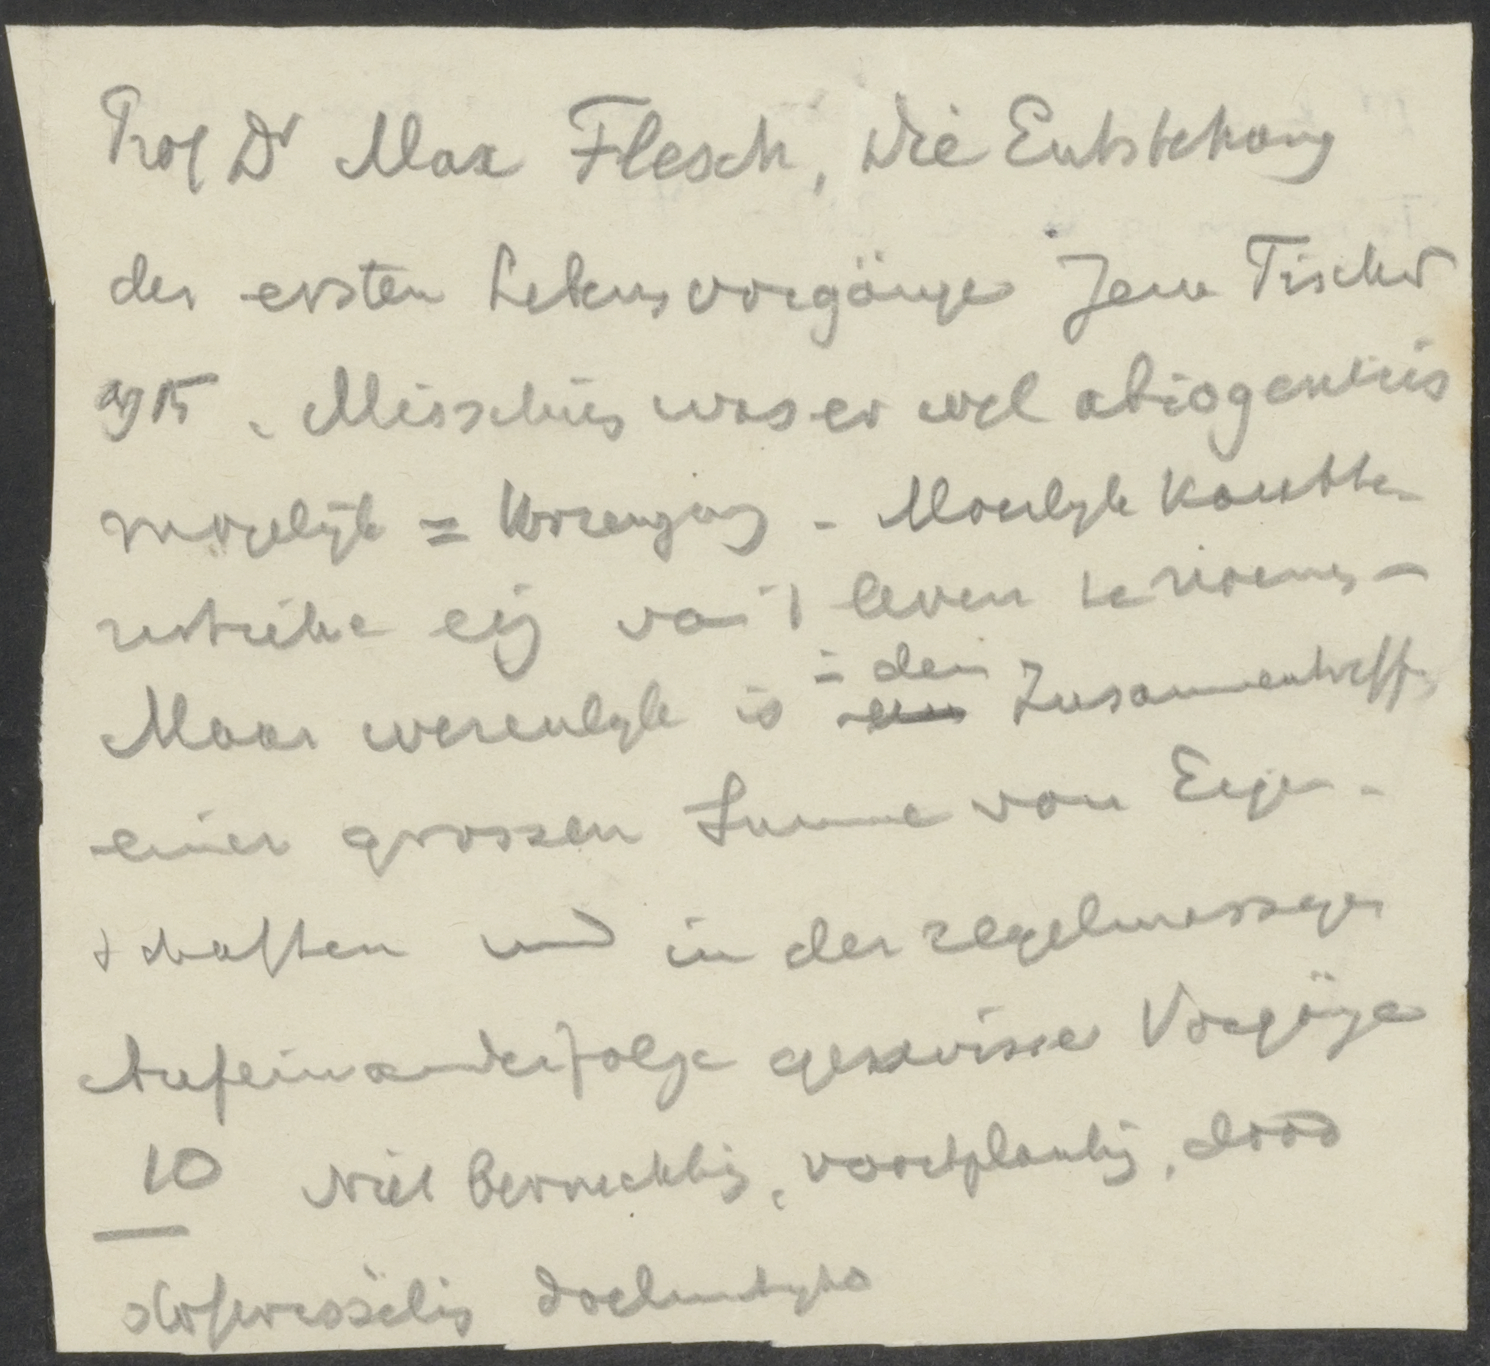 Prof Dr Max Flesch, Die Entstehung
der ersten Lebensvorgänge Jena Fischer
1915. Misschien was er wel abiogenesis
mogelijk = Urzeugung - Moeilijk
eig van 't leven te
Maar wezenlijk is = dem Zusammentreffen
einer grossen Summe von Eigen-
schaften und in der regelmassigen
Aufeinanderfolge gewisser Vorgänge
10 Niet bevruchting, voortplanting, dood
stofwisseling